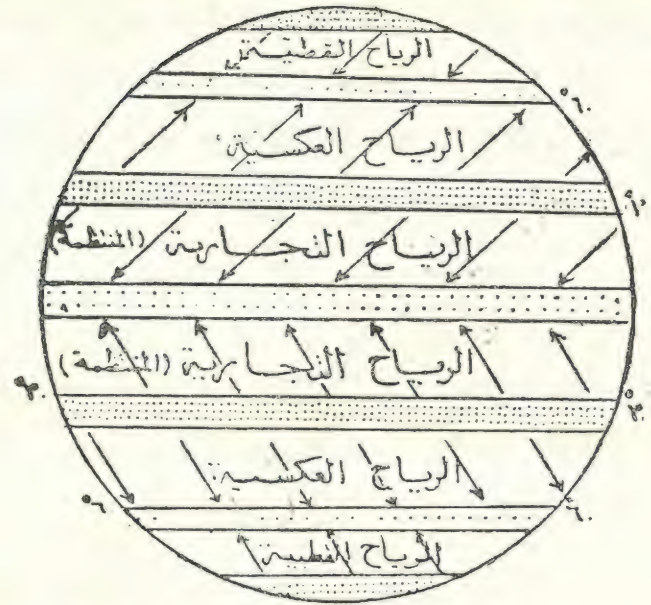 الرياح القطبية
°٦٠
الرياح العكسية
°٣٠
الرياح التجارية (المنتظمة)
°٠
الرياح التجارية (المنتظمة)
°٣٠ °٣٠
الرياح العكسية
°٦٠ °٦٠
الرياح القطبية